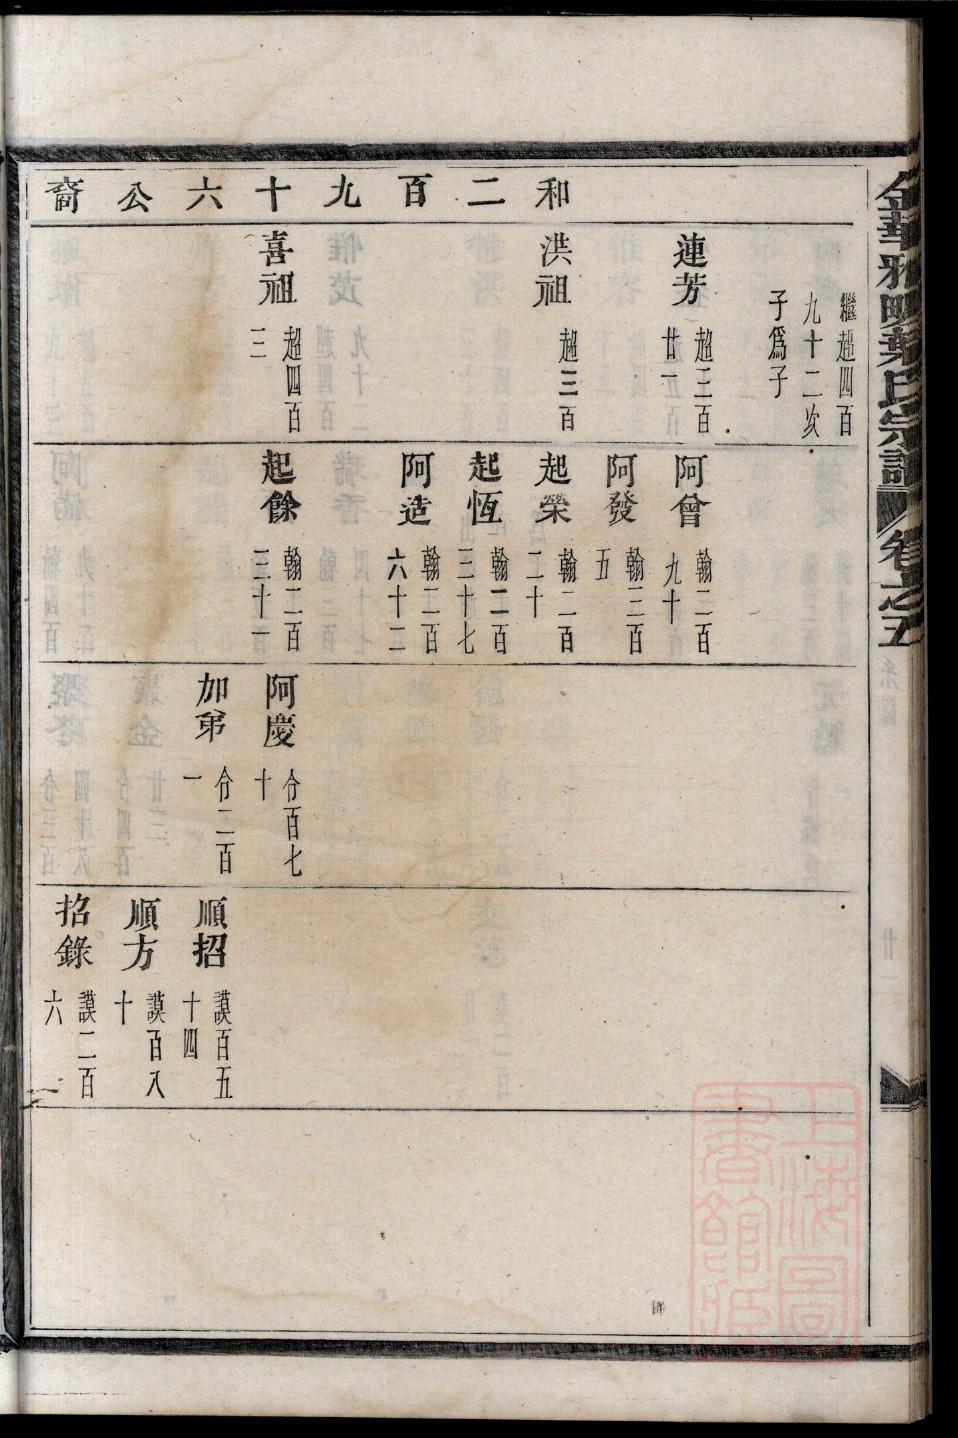 金華雅畈葉氏宗譜 卷之五
和二百九十六公裔
繼超四百
九十二次
子爲子
連芳 超三百
廿一
洪祖 超三百
喜祖 超四百
三
阿曾 翰二百
九十
阿發 翰三百
五
起榮 翰二百
二十
起恆 翰二百
三十七
阿造 翰二百
六十二
起餘 翰二百
三十一
阿慶 分百七
十
加弟 分二百
一
順招 謨百五
十四
順方 謨百八
十
招錄 謨二百
六
上海圖
書館藏